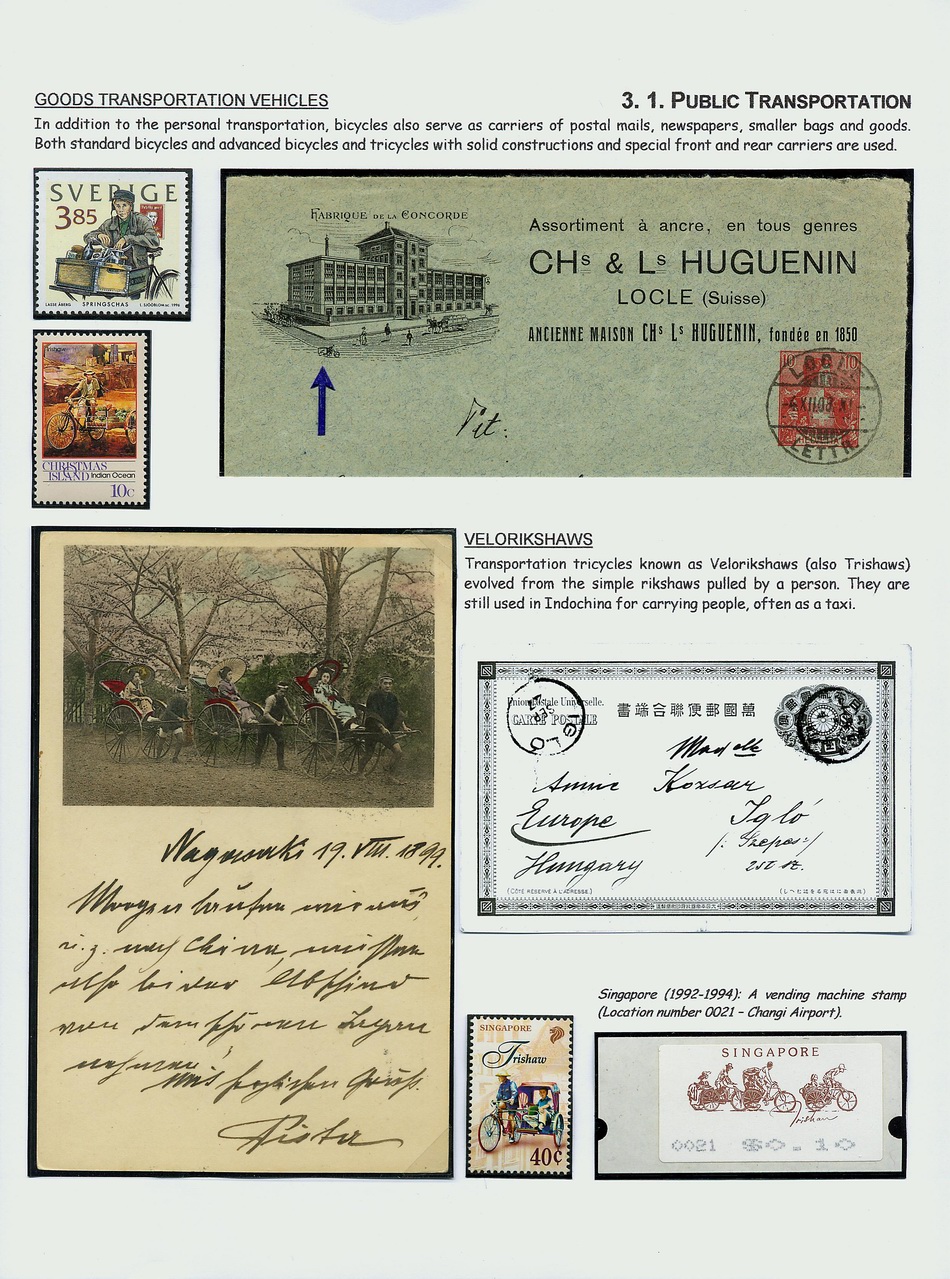 GOODS TRANSPORTATION VEHICLES
3. 1. PUBLIC TRANSPORTATION
In addition to the personal transportation, bicycles also serve as carriers of postal mails, newspapers, smaller bags and goods.
Both standard bicycles and advanced bicycles and tricycles with solid constructions and special front and rear carriers are used.
SVERIGE
3.85
LASSE ÅBERG SPRINGSCHAS L. SJÖÖBLOM sc. 1996
CHRISTMAS
ISLAND Indian Ocean
10c
FABRIQUE DE LA CONCORDE
Assortiment à ancre, en tous genres
CHs & Ls HUGUENIN
LOCLE (Suisse)
ANCIENNE MAISON CHs Ls HUGUENIN, fondée en 1850
10 10
LOCLE
XII.03
LETTR
VELORIKSHAWS
Transportation tricycles known as Velorikshaws (also Trishaws)
evolved from the simple rikshaws pulled by a person. They are
still used in Indochina for carrying people, often as a taxi.
Union Postale Universelle.
CARTE POSTALE
書端合聯便郵國萬
IGLÓ
Annie Koxsar
Europe Igló
Hungary
(CÔTE RÉSERVÉ À L'ADRESSE)
Nagasaki 19. VIII. 1899.
Morgen laufen wir aus,
u. z. nach China, müssen
also leider Abschied
von dem schönen Japan
nehmen!
Singapore (1992-1994): A vending machine stamp
(Location number 0021 – Changi Airport).
SINGAPORE
Trishaw
40¢
SINGAPORE
Trishaw
0021 $0.10